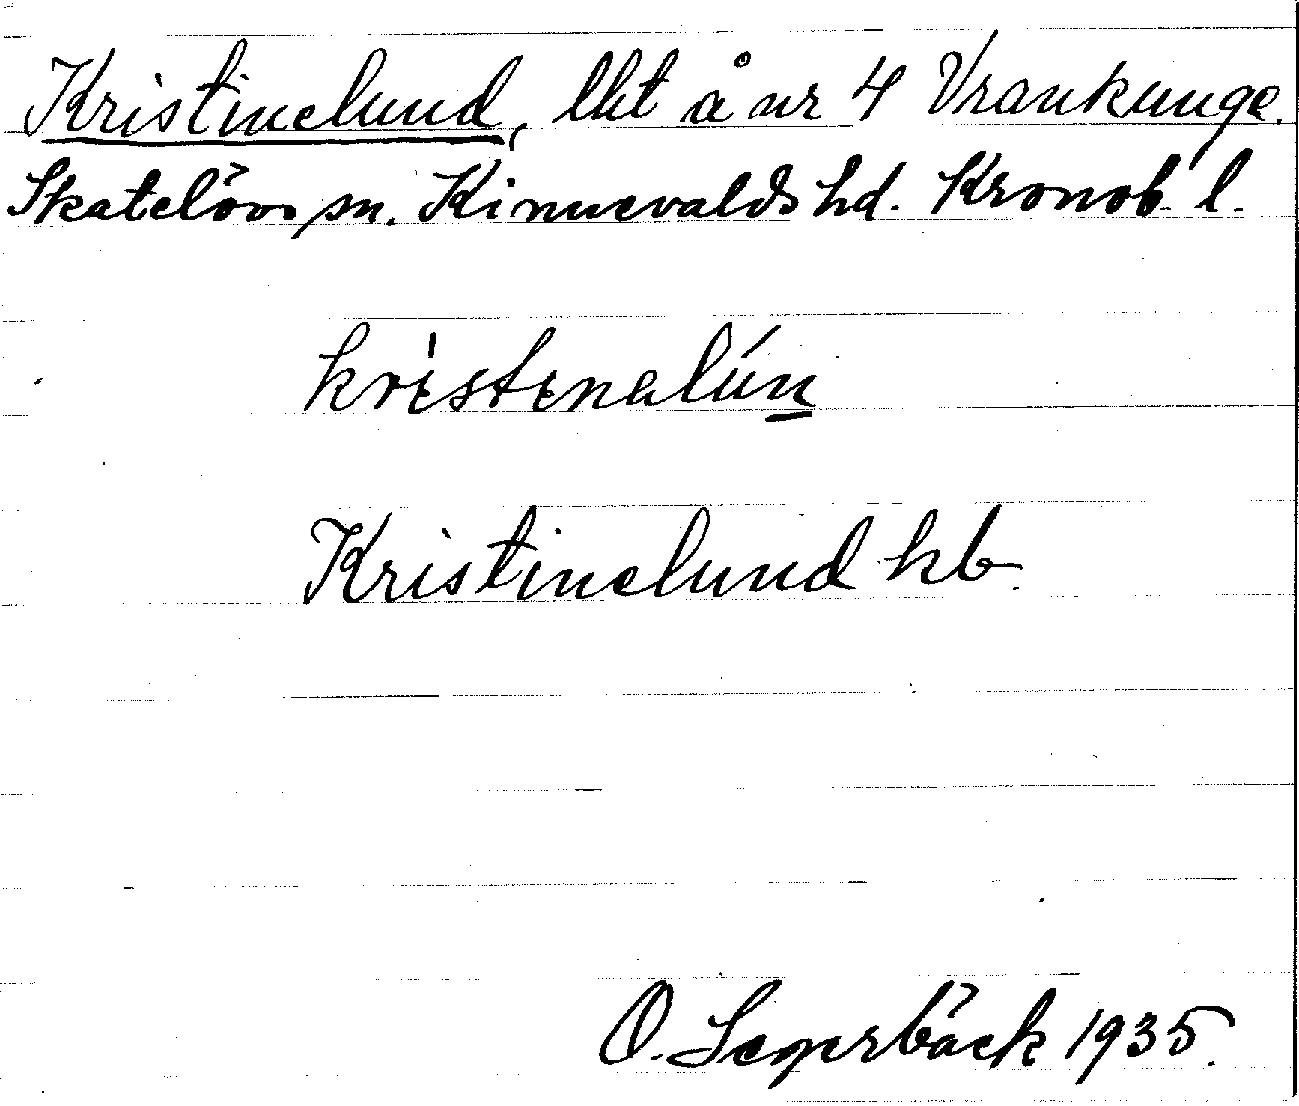 Kristinelund, lht å nr 4 Vrankunge.
Skatelövs sn. Kinnevalds hd. Kronob. l.
kristinalún
Kristinelund hb
O. Segerbäck 1935.